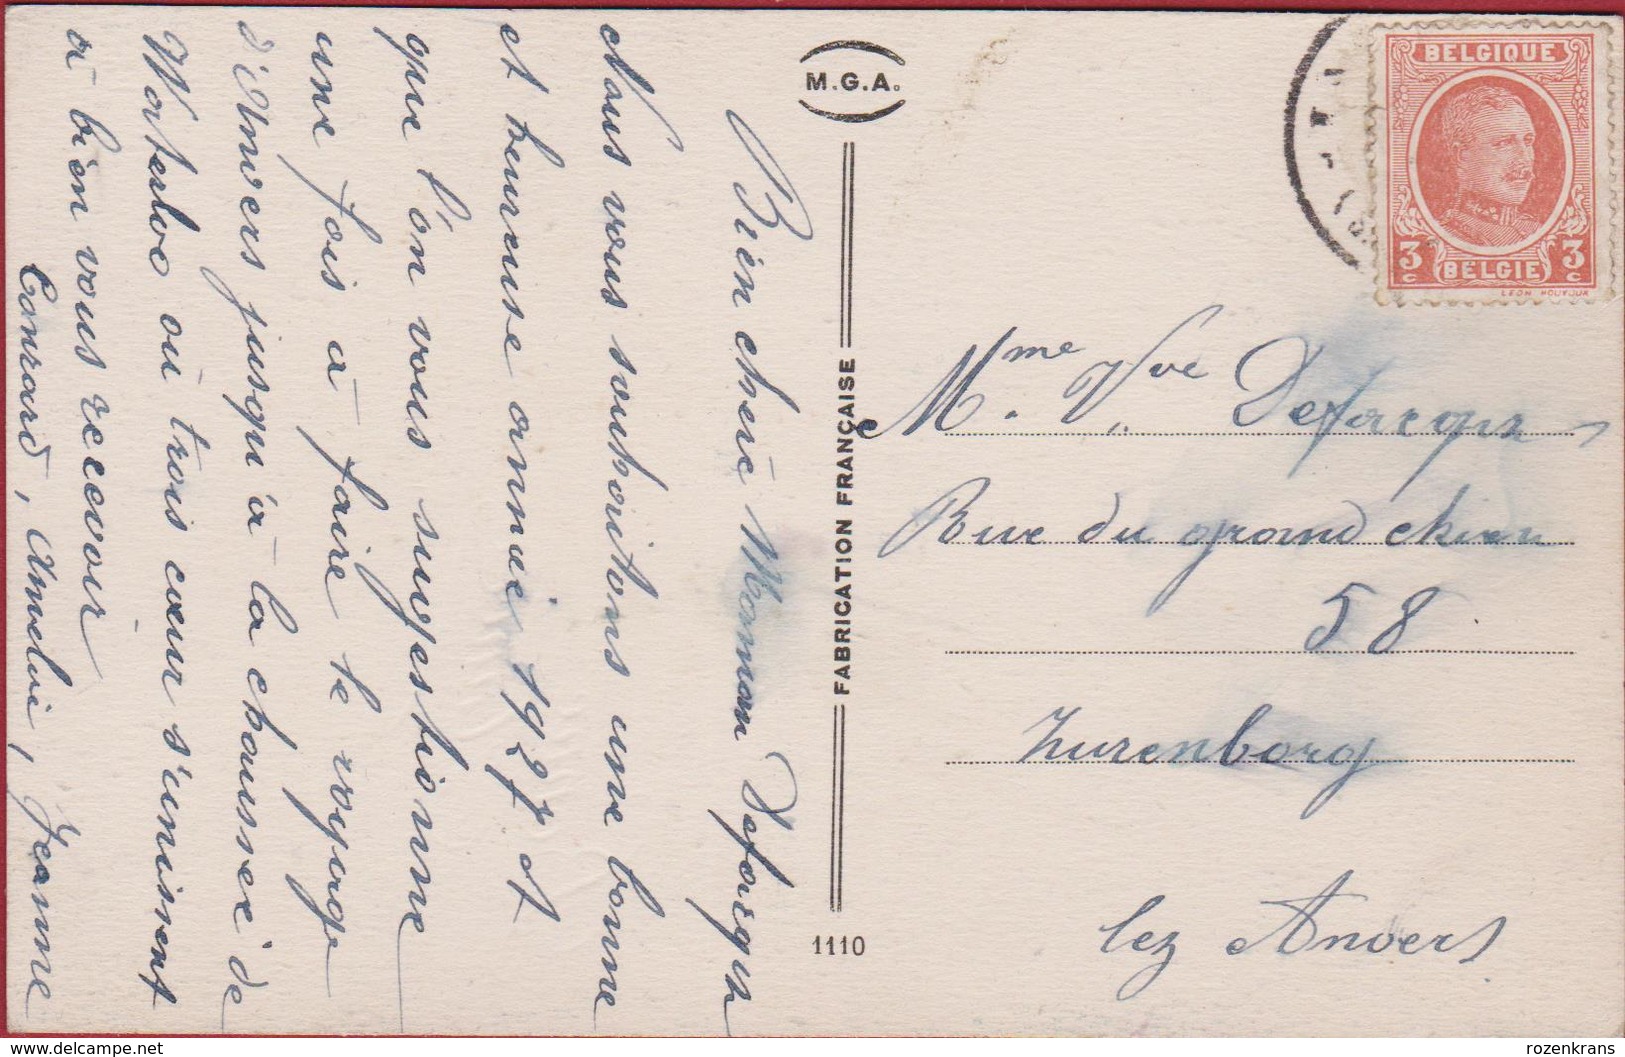 M.G.A.
FABRICATION FRANÇAISE
1110
Bien chère Maman Defacqin
Nous vous souhaitons une bonne
et heureuse année 1927 et
que l'on vous sugestionne
une fois à faire le voyage
d'Anvers jusqu'à la chaussée de
Waterloo où trois cœur s'unissent
à bien vous recevoir
Conrard, Amélie, Jeanne
BELGIQUE
3 c BELGIË 3 c
Mme Vve Defacqin
Rue du grand chien
58
Zurenborg
lez Anvers
www.delcampe.net
rozenkrans